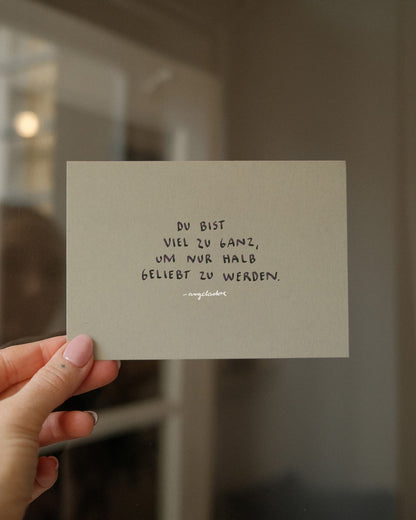 DU BIST
VIEL ZU GANZ,
UM NUR HALB
GELIEBT ZU WERDEN.